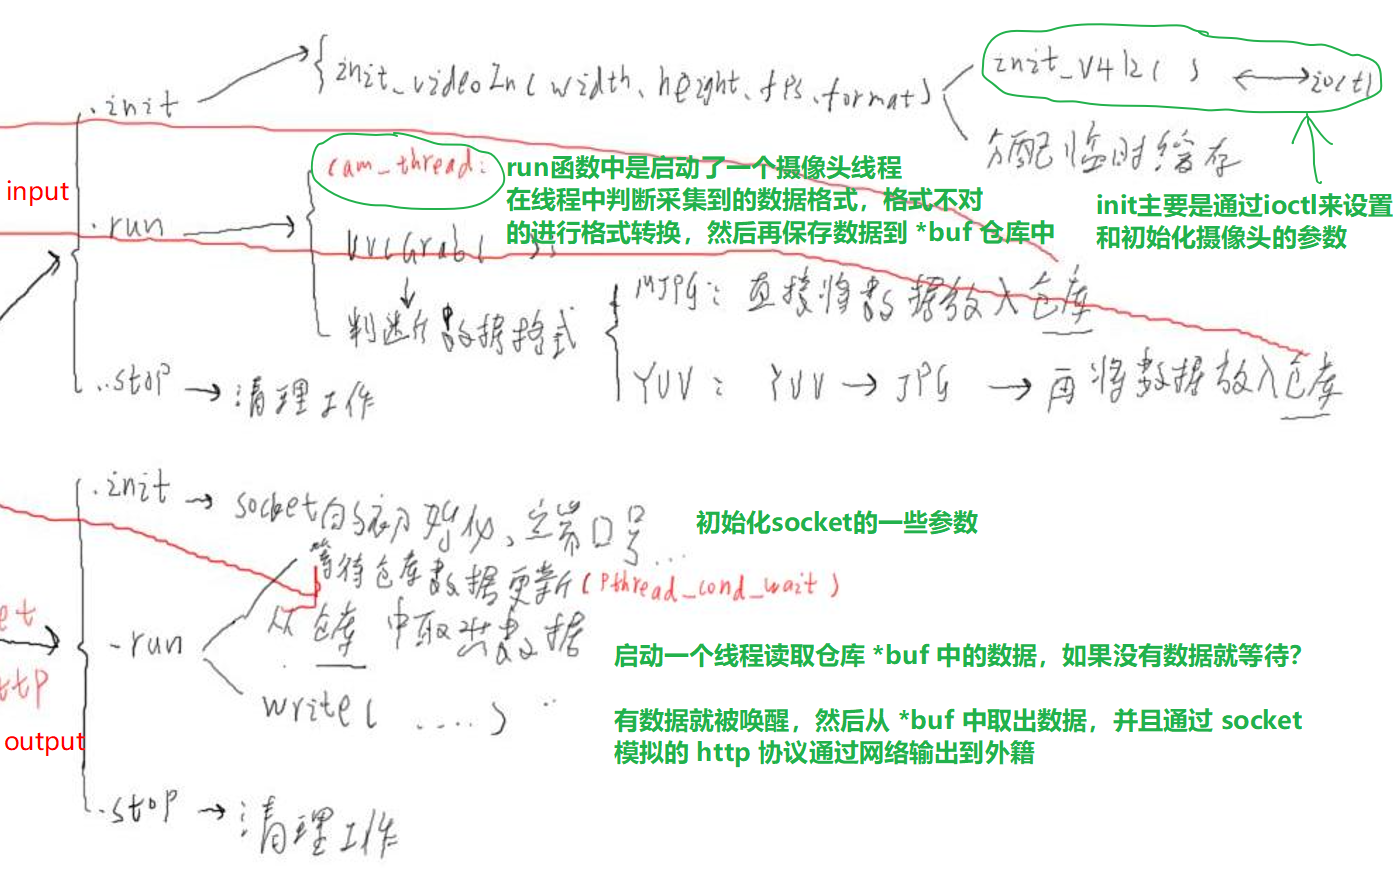 .init
{init_videoIn(width、height、fps、format)
init_V4l2( ) ⟷ ioctl
分配临时缓存
init主要是通过ioctl来设置
和初始化摄像头的参数
input
.run
cam_thread:
run函数中是启动了一个摄像头线程
在线程中判断采集到的数据格式，格式不对
的进行格式转换，然后再保存数据到 *buf 仓库中
uvcGrab( );
↓
判断数据格式
MJPG：直接将数据放入仓库
YUV：YUV → JPG → 再将数据放入仓库
.stop → 清理工作
.init → socket的初始化、定端口号...
初始化socket的一些参数
-run
等待仓库数据更新(Pthread_cond_wait)
从仓库中取出数据
write( .... ) ..
启动一个线程读取仓库 *buf 中的数据，如果没有数据就等待?
有数据就被唤醒，然后从 *buf 中取出数据，并且通过 socket
模拟的 http 协议通过网络输出到外籍
et
ttp
output
.stop → 清理工作